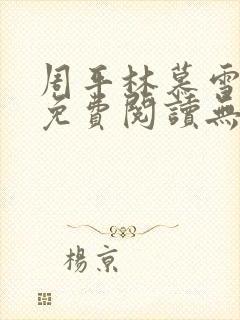 周平林慕雪
免費閱讀無
楊京